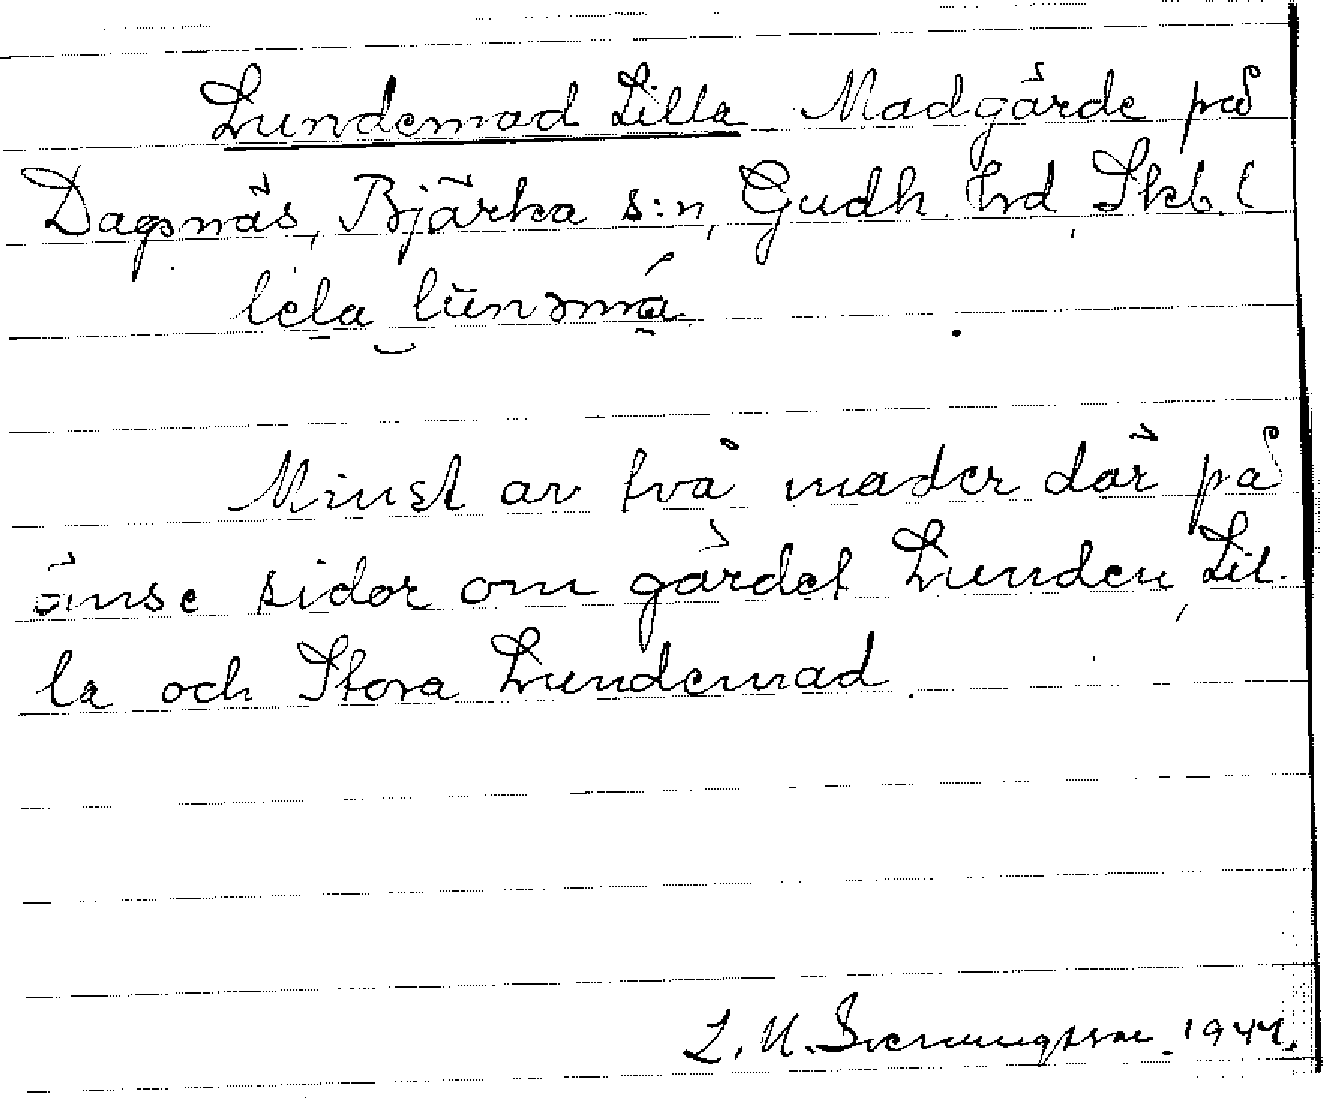 Lundemad Lilla Madgärde på
Dagsnäs, Bjärka s:n, Gudh. hrd, Skb. l
lela lūnəmá
Minst av två mader där på
ömse sidor om gärdet Lunden, Lil-
la och Stora Lundemad.
L. N. Svenungsson. 1944.